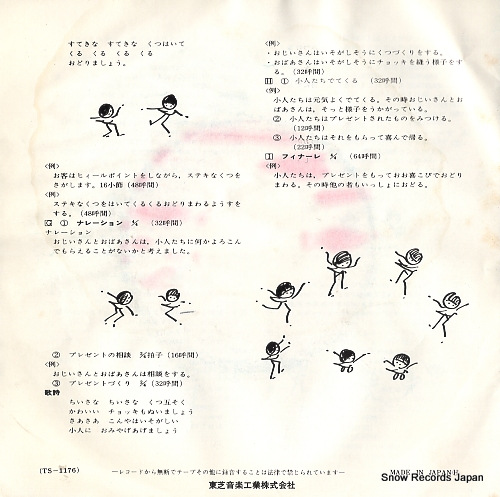 すてきな すてきな くつはいて
くる くる くる くる
おどりましょう。
〈例〉
お客はヒィールポイントをしながら、ステキなくつを
さがします。16小節 (48呼間)
〈例〉
ステキなくつをはいてくるくるおどりまわるようすを
する。(48呼間)
G ① ナレーション (32呼間)
ナレーション
おじいさんとおばあさんは、小人たちに何かよろこん
でもらえることがないかと考えました。
② プレゼントの相談 拍子 (16呼間)
〈例〉
おじいさんとおばあさんは相談をする。
③ プレゼントづくり (32呼間)
歌詩
ちいさな ちいさな くつ五そく
かわいい チョッキもぬいましょう
さあさあ こんやはいそがしい
小人に おみやげあげましょう
〈例〉
・おじいさんはいそがしそうにくつづくりをする。
・おばあさんはいそがしそうにチョッキを縫う様子をす
る。(32呼間)
H ① 小人たちでてくる (32呼間)
〈例〉
小人たちは元気よくでてくる。その時おじいさんとお
ばあさんは、そっと様子をうかがっている。
② 小人たちはプレゼントされたものをみつける。
(12呼間)
③ 小人たちはそれをもらって喜んで帰る。
(220呼間)
I フィナーレ (64呼間)
〈例〉
小人たちは、プレゼントをもっておお喜びでおどり
まわる。その時他の者もいっしょにおどる。
(TS-1176)
―レコードから無断でテープその他に録音することは法律で禁じられています―
MADE IN JAPAN
東芝音楽工業株式会社
Snow Records Japan